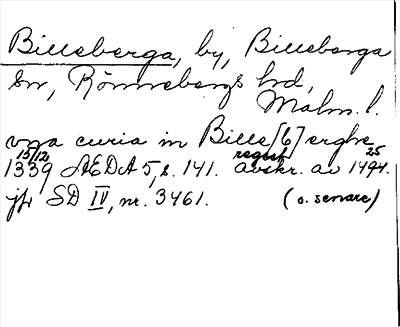 Billeberga, by, Billeberga
sn, Rönnebergs hd,
Malm. l.
vna curia in Bille[b]erghe
15/12 regest 25
1339 ÆDA 5, s. 141. avskr. av 1494.
jfr SD IV, nr. 3461. (o. senare)